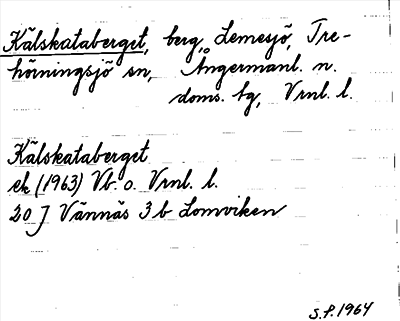 Kälskataberget, berg, Lemesjö, Tre-
hörningsjö sn, Ångermanl. n.
doms. tg, Vrnl. l.
Kälskataberget
ek (1963) Vb. o. Vrnl. l.
20 J Vännäs 3 b Lomviken
S.P. 1964